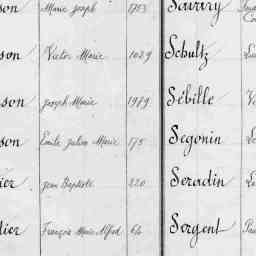 son Marie Joseph 1753 Savary
son Victor Marie 1029 Schultz
son Joseph Marie 1979 Sébille
son Emile Julien Marie 175 Segonin
ier Jean Baptiste 220 Seradin
dier François Marie Alfred 64 Sergent